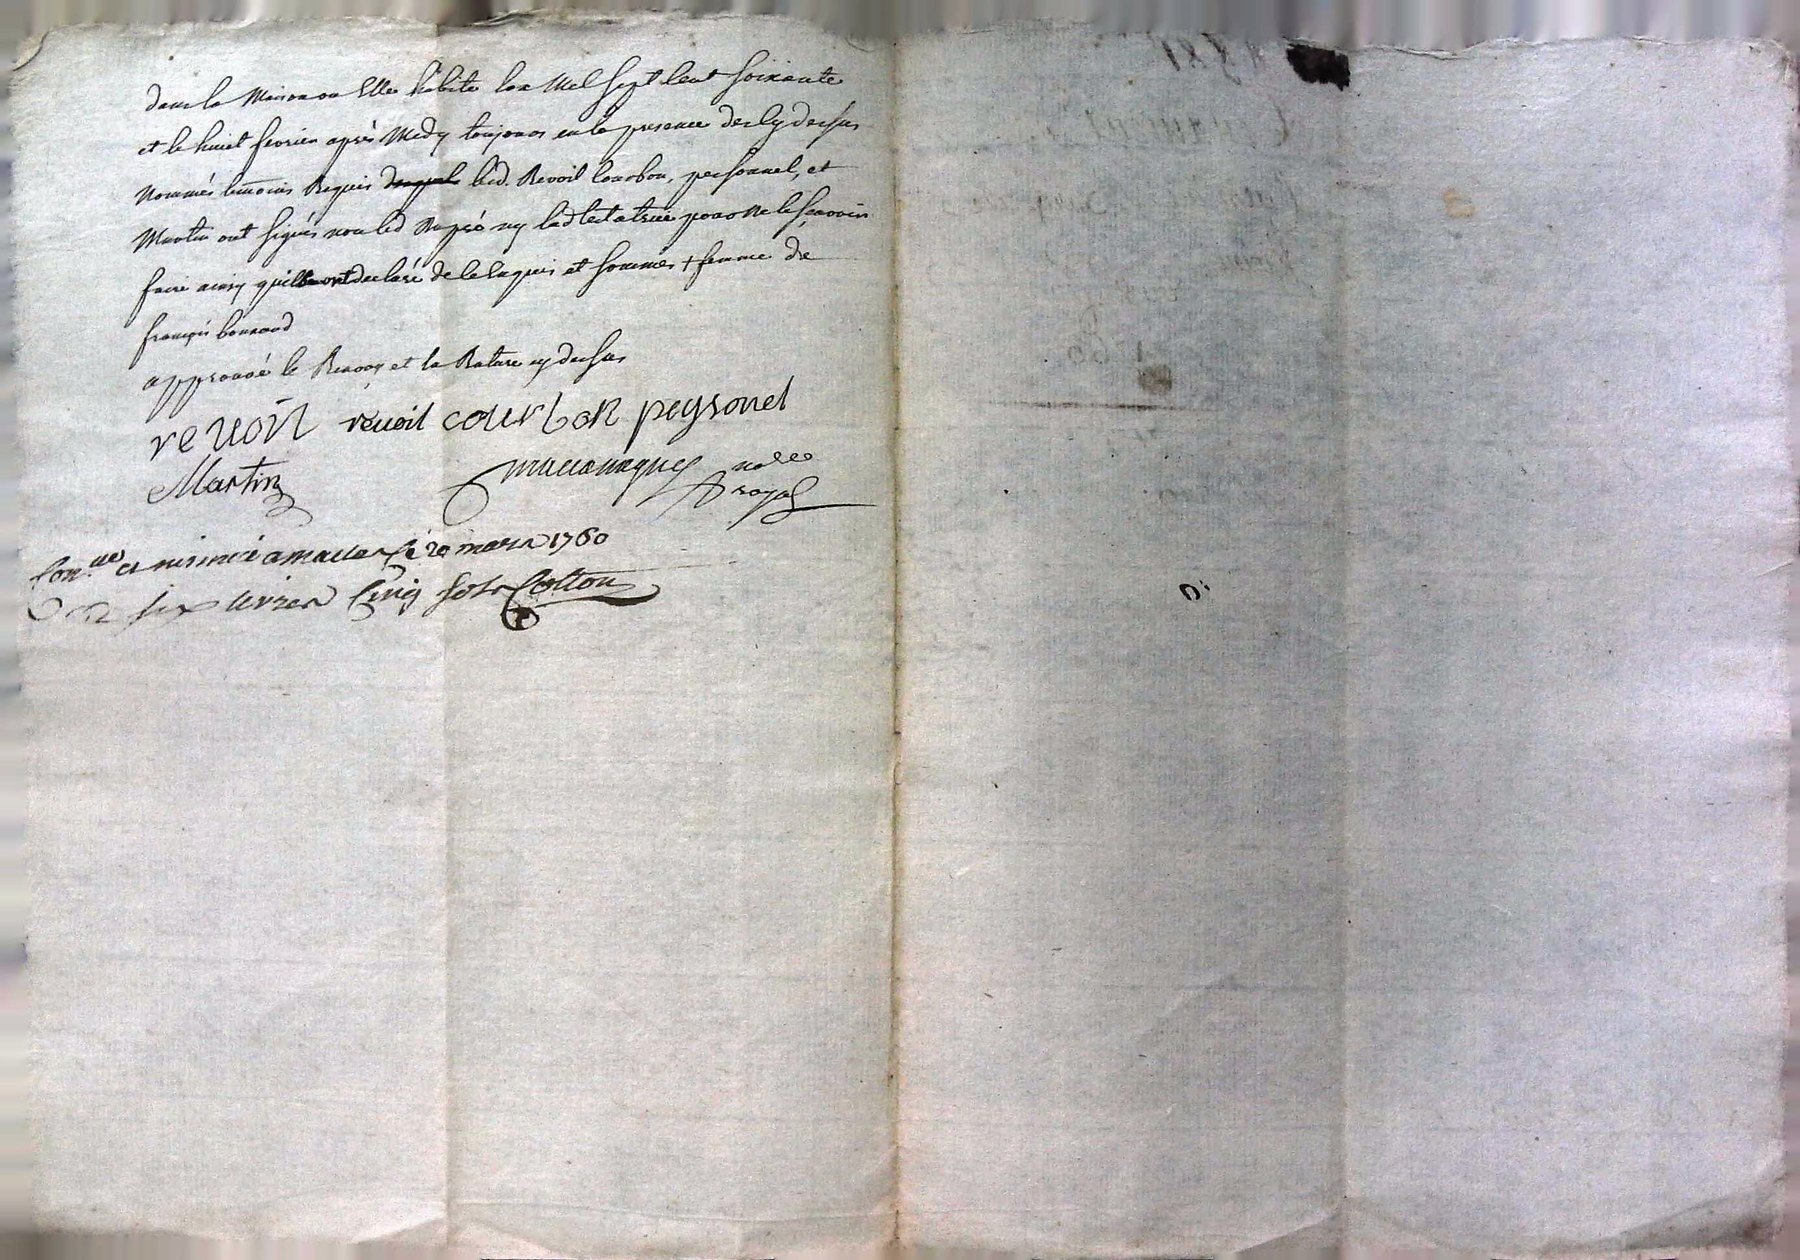 dans la Maison ou Elle habite lan Mil sept Cent soixante
et le huict fevrier après Midy toujours en la presence des Cy dessus
Nommés temoins Requis led. Revoil Courbon, peysonnel, et
Martin ont signés non led Dupré ny lad testatrice pour Ne le scavoir
faire ainsy quils ont declaré de ce Enquis et sommés + femme de
françois bonnaud
approuvé le Renvoy et la Rature cy dessus
revoil revoil courbon peysonel
Martin nore
royal
Con.lle et insinué a le 20 mars 1760
Six livres Cinq sols